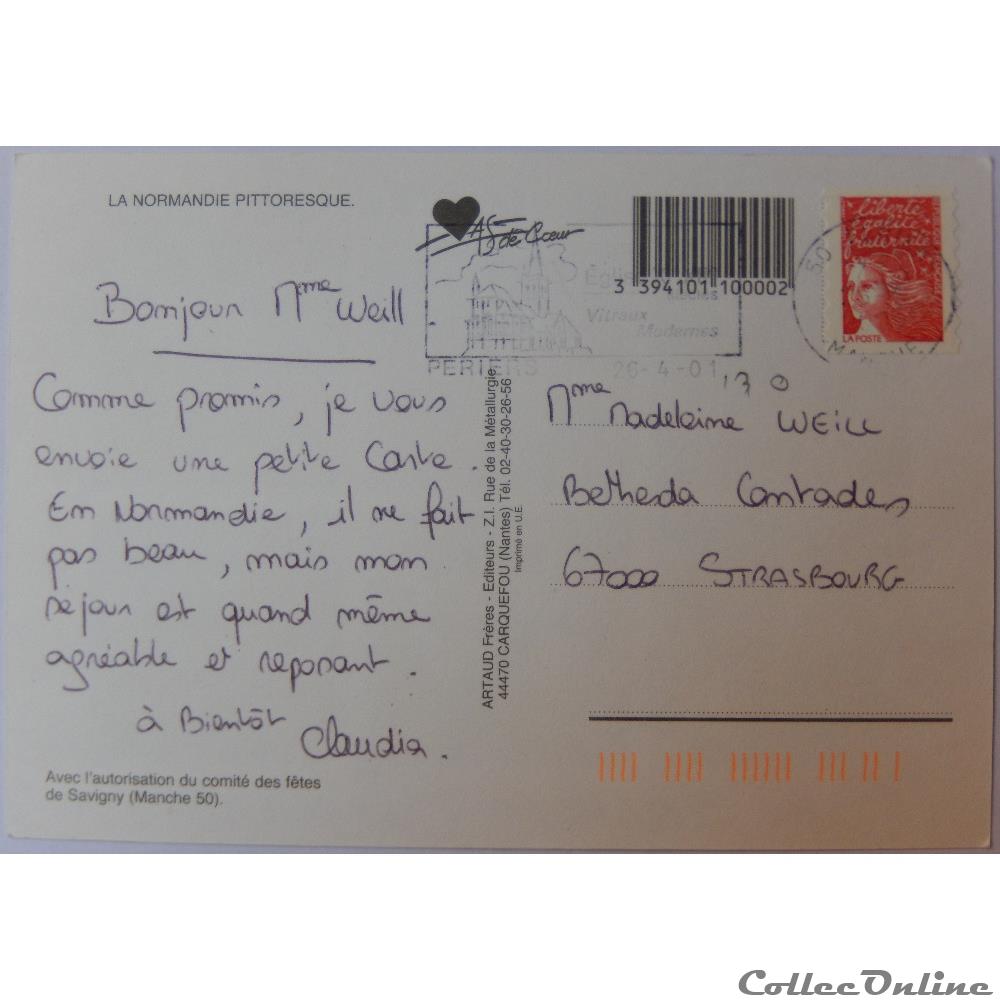 LA NORMANDIE PITTORESQUE.
As de Cœur
3 394101 100002
liberté
égalité
fraternité
LA POSTE
Église
Vitraux
Modernes
PERIERS 26-4-01
Bonjour Mme Weill
Comme promis, je vous
envoie une petite Carte.
En Normandie, il ne fait
pas beau, mais mon
séjour est quand même
agréable et reposant.
à Bientôt
Claudia.
Avec l'autorisation du comité des fêtes
de Savigny (Manche 50).
ARTAUD Frères - Editeurs - Z.I. Rue de la Métallurgie
44470 CARQUEFOU (Nantes) Tél. 02-40-30-26-56
Imprimé en U.E.
Mme Madeleine WEILL
Bethesda Contades
67000 STRASBOURG
CollecOnline